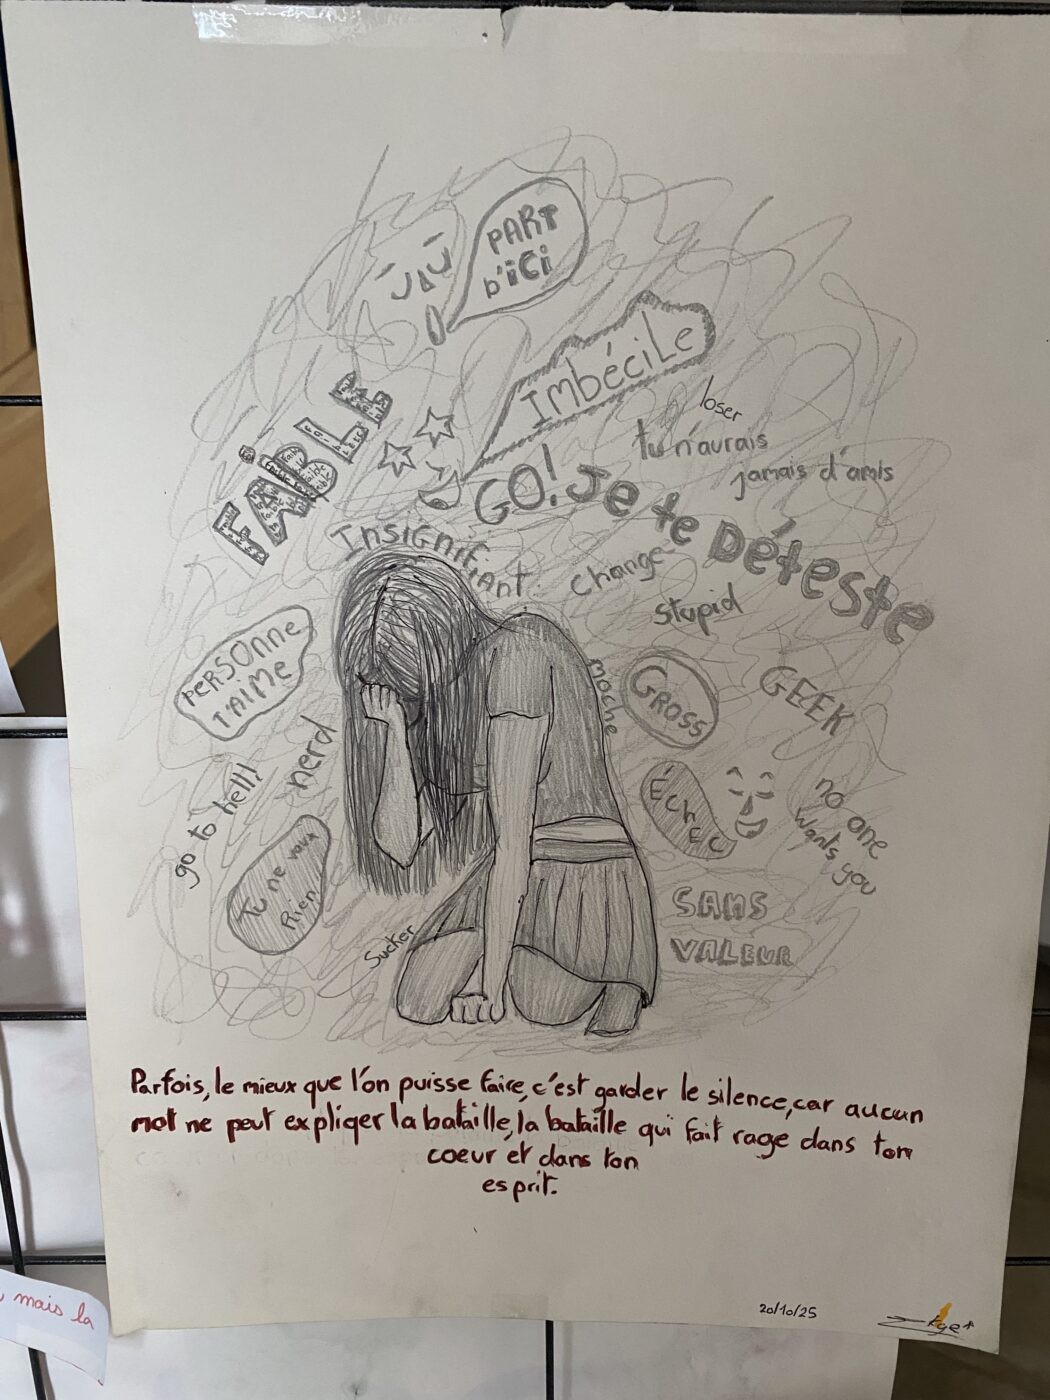 PART
D'iCi
IMbéCiLe
FAiBLE
loser
tu n'aurais
jamais d'amis
GO! Je te Déteste
Insignifiant
change
stupid
PERSONNE
T'AIME
moche
GROSS
GEEK
nerd
go to hell!
Échec
no one
wants you
Tu ne vaux
Rien!
SANS
VALEUR
Sucker
Parfois, le mieux que l'on puisse faire, c'est garder le silence, car aucun
mot ne peut expliqer la bataille, la bataille qui fait rage dans ton
coeur et dans ton
esprit.
mais la
20/10/25